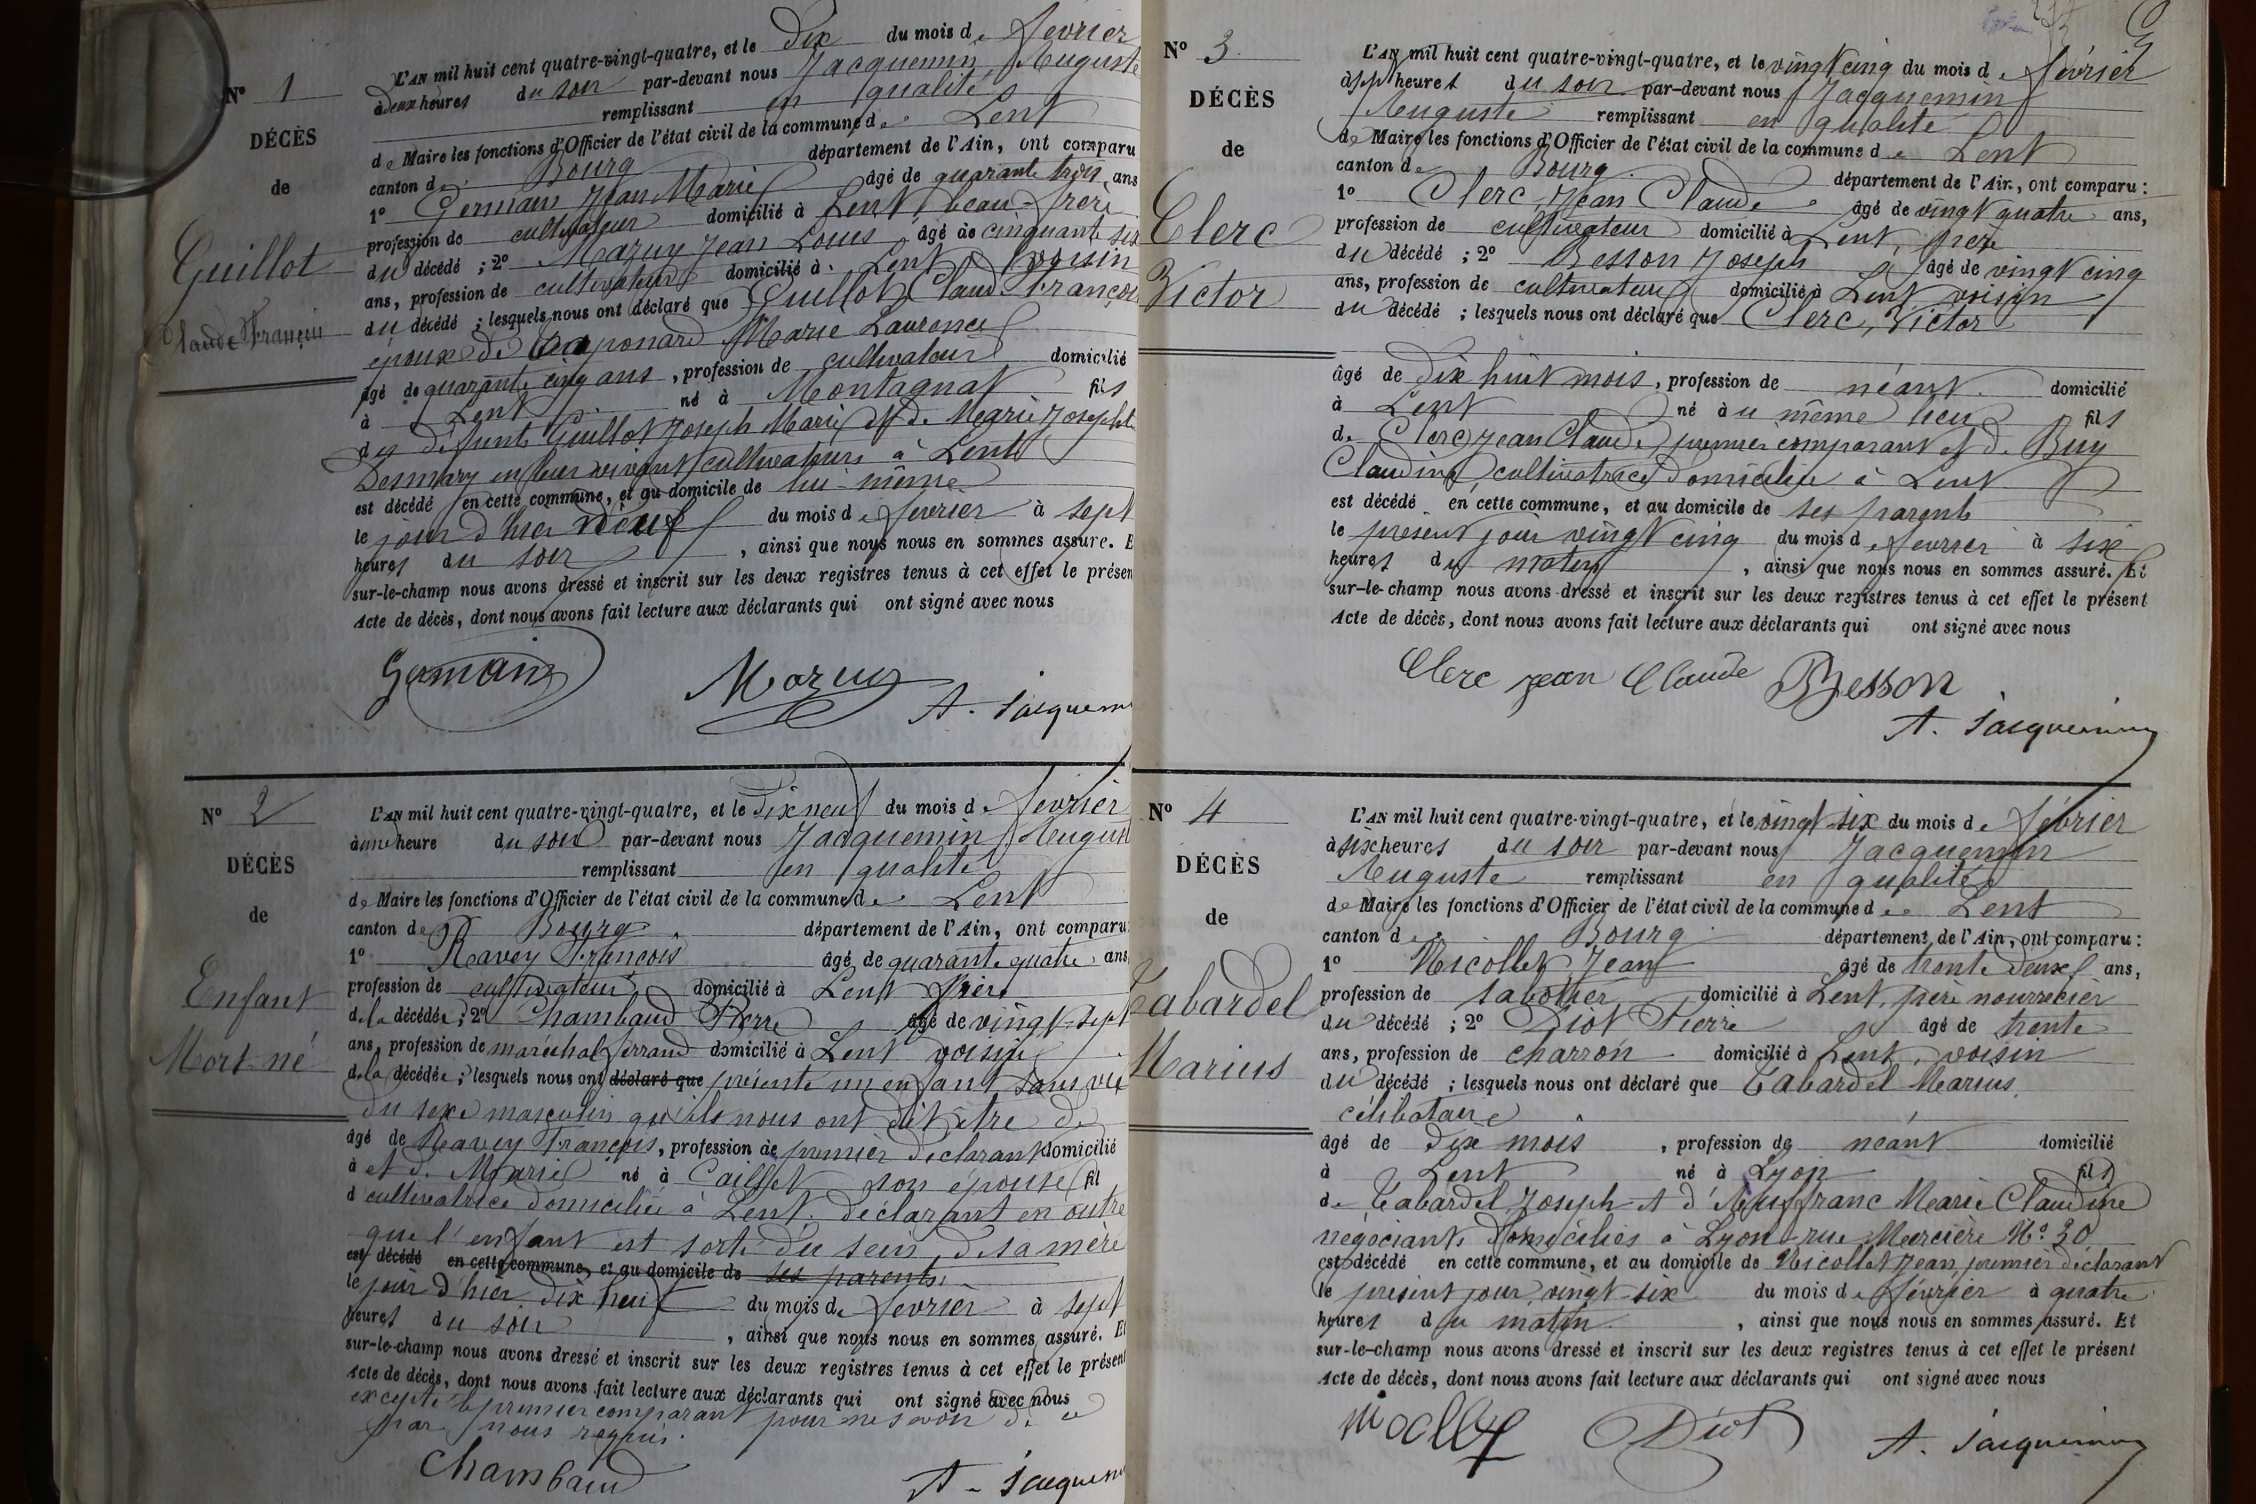 N° 1
DÉCÈS
de
Guillot
Claude François
L'AN mil huit cent quatre-vingt-quatre, et le dix du mois de février
à deux heures du soir par-devant nous Jacquemin Auguste
remplissant en qualité
de Maire les fonctions d'Officier de l'état civil de la commune de Lent
canton de Bourg département de l'Ain, ont comparu
1° Germain Jean Marie âgé de quarante trois ans
profession de cultivateur domicilié à Lent, beau-frère
du décédé ; 2° Mazuy Jean Louis âgé de cinquante six
ans, profession de cultivateur domicilié à Lent, voisin
du décédé ; lesquels nous ont déclaré que Guillot Claude François
époux de Marie Laurence
âgé de quarante cinq ans, profession de cultivateur domicilié
à Lent né à Montagnat fils
des défunts Guillot Joseph Marie et de Marie Josephte
Desmary en leur vivant cultivateurs à Lent
est décédé en cette commune, et au domicile de lui-même
le jour d'hier neuf du mois de février à sept
heures du soir, ainsi que nous nous en sommes assuré. E
sur-le-champ nous avons dressé et inscrit sur les deux registres tenus à cet effet le présen
Acte de décès, dont nous avons fait lecture aux déclarants qui ont signé avec nous
Germain Mazuy
A. Jacquem
N° 2
DÉCÈS
de
Enfant
Mort-né
L'AN mil huit cent quatre-vingt-quatre, et le dix neuf du mois de février
à une heure du soir par-devant nous Jacquemin August
remplissant en qualité
de Maire les fonctions d'Officier de l'état civil de la commune de Lent
canton de Bourg département de l'Ain, ont comparu
1° Ravey François âgé de quarante quatre ans
profession de cultivateur domicilié à Lent père
de la décédée ; 2° Chambaud Pierre âgé de vingt-sept
ans, profession de maréchal ferrand domicilié à Lent voisin
de la décédée ; lesquels nous ont déclaré que présenté un enfant sans vie
du sexe masculin qu'ils nous ont dit être de
âgé de Ravey François, profession de premier déclarant domicilié
à et de Marie né à Caillet son épouse fil
d cultivatrice domiciliée à Lent. déclarant en outre
que l'enfant est sorti du sein de sa mère
est décédé en cette commune, et au domicile de ses parents
le jour d'hier dix huit du mois de février à sept
heures du soir, ainsi que nous nous en sommes assuré. Et
sur-le-champ nous avons dressé et inscrit sur les deux registres tenus à cet effet le présent
Acte de décès, dont nous avons fait lecture aux déclarants qui ont signé avec nous
excepté le premier comparant pour ne savoir de ce
par nous requis.
Chambaud
A. Jacquem
N° 3
DÉCÈS
de
Clerc
Victor
L'AN mil huit cent quatre-vingt-quatre, et le vingt cinq du mois de février
à sept heures du soir par-devant nous Jacquemin
Auguste remplissant en qualité
de Maire les fonctions d'Officier de l'état civil de la commune de Lent
canton de Bourg département de l'Ain, ont comparu :
1° Clerc, Jean Claude âgé de vingt quatre ans,
profession de cultivateur domicilié à Lent, père
du décédé ; 2° Besson Joseph âgé de vingt cinq
ans, profession de cultivateur domicilié à Lent, voisin
du décédé ; lesquels nous ont déclaré que Clerc, Victor
âgé de dix huit mois, profession de néant domicilié
à Lent né à u même lieu fils
de Clerc Jean Claude premier comparant et de Buy
Claudine, cultivatrice domiciliée à Lent
est décédé en cette commune, et au domicile de ses parents
le présent jour vingt cinq du mois de février à six
heures du matin, ainsi que nous nous en sommes assuré. Et
sur-le-champ nous avons dressé et inscrit sur les deux registres tenus à cet effet le présent
Acte de décès, dont nous avons fait lecture aux déclarants qui ont signé avec nous
Clerc jean Claude Besson
A. Jacquemin
N° 4
DÉCÈS
de
Tabardel
Marius
L'AN mil huit cent quatre-vingt-quatre, et le vingt-six du mois de février
à six heures du soir par-devant nous Jacquemin
Auguste remplissant en qualité
de Maire les fonctions d'Officier de l'état civil de la commune de Lent
canton de Bourg département de l'Ain, ont comparu :
1° Nicollet Jean âgé de trente deux ans,
profession de sabotier domicilié à Lent, père nourricier
du décédé ; 2° Diot Pierre âgé de trente
ans, profession de charron domicilié à Lent, voisin
du décédé ; lesquels nous ont déclaré que Tabardel Marius,
célibataire
âgé de dix mois, profession de néant domicilié
à Lent né à Lyon fils
de Tabardel Joseph et d' Marie Claudine
négociants domiciliés à Lyon rue Mercière N° 30
est décédé en cette commune, et au domicile de Nicollet Jean, premier déclarant
le présent jour vingt-six du mois de février à quatre
heures du matin, ainsi que nous nous en sommes assuré. Et
sur-le-champ nous avons dressé et inscrit sur les deux registres tenus à cet effet le présent
Acte de décès, dont nous avons fait lecture aux déclarants qui ont signé avec nous
Diot A. Jacquemin